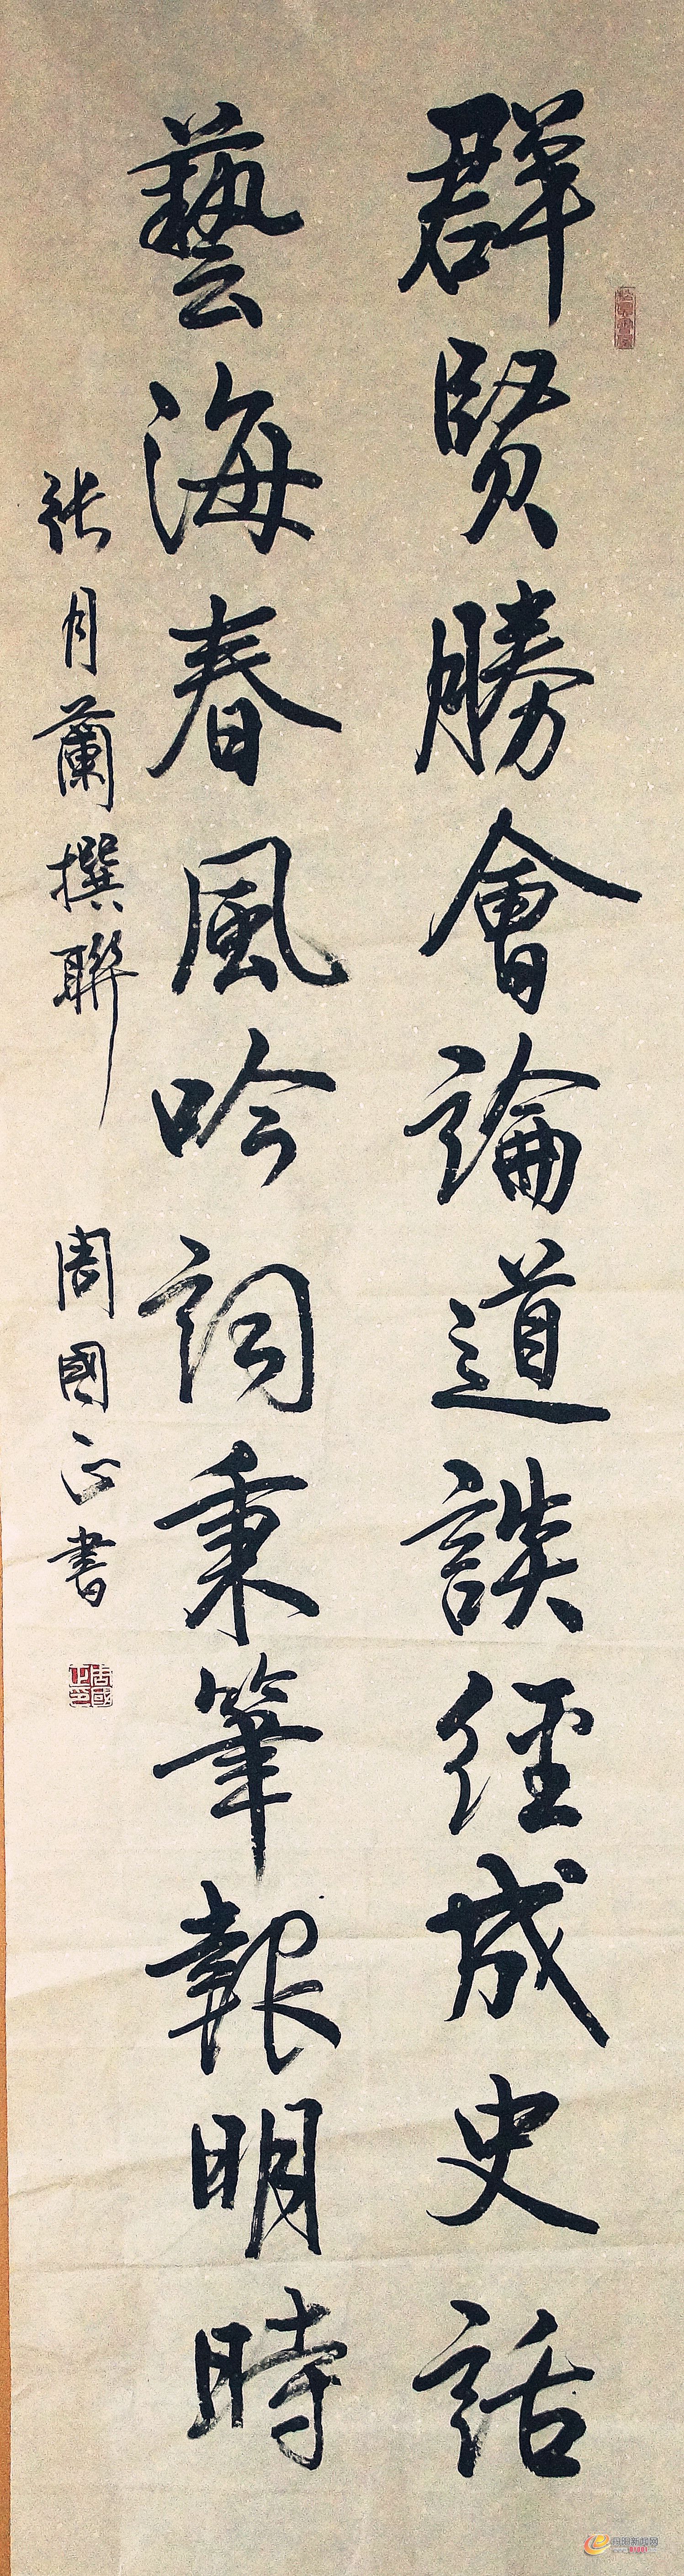 群賢勝會論道談經成史話
藝海春風吟詞秉筆報明時
张月蘭撰聯 周國正書